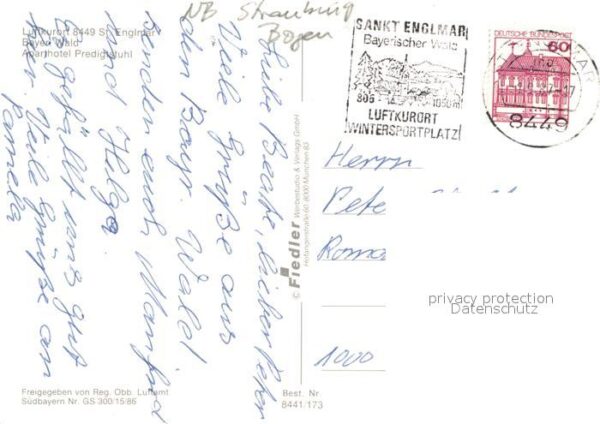 Luftkurort 8449 St. Englmar
Bayer. Wald
Aparthotel Predigtstuhl
NB Straubing
Bogen
SANKT ENGLMAR
Bayerischer Wald
805 - 1050m
LUFTKURORT
WINTERSPORTPLATZ
DEUTSCHE BUNDESPOST
60
8449
Liebe Beate, lieber Peter
Viele Grüße aus
dem Bayr. Wald
senden euch Manfred
und Helga
Es gefällt uns gut
hier. Viele Grüße an
Pamela
© Fiedler Werbestudio & Verlags GmbH
8000 München 83
Herrn
Pete
Roma
1000
privacy protection
Datenschutz
Freigegeben von Reg. Obb. Luftamt
Südbayern Nr. GS 300/15/86
Best. Nr.
8441/173